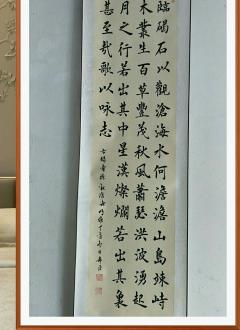 臨碣石以觀滄海水何澹澹山島竦峙
木叢生百草豐茂秋風蕭瑟洪波湧起
月之行若出其中星漢燦爛若出其裏
甚至哉歌以咏志